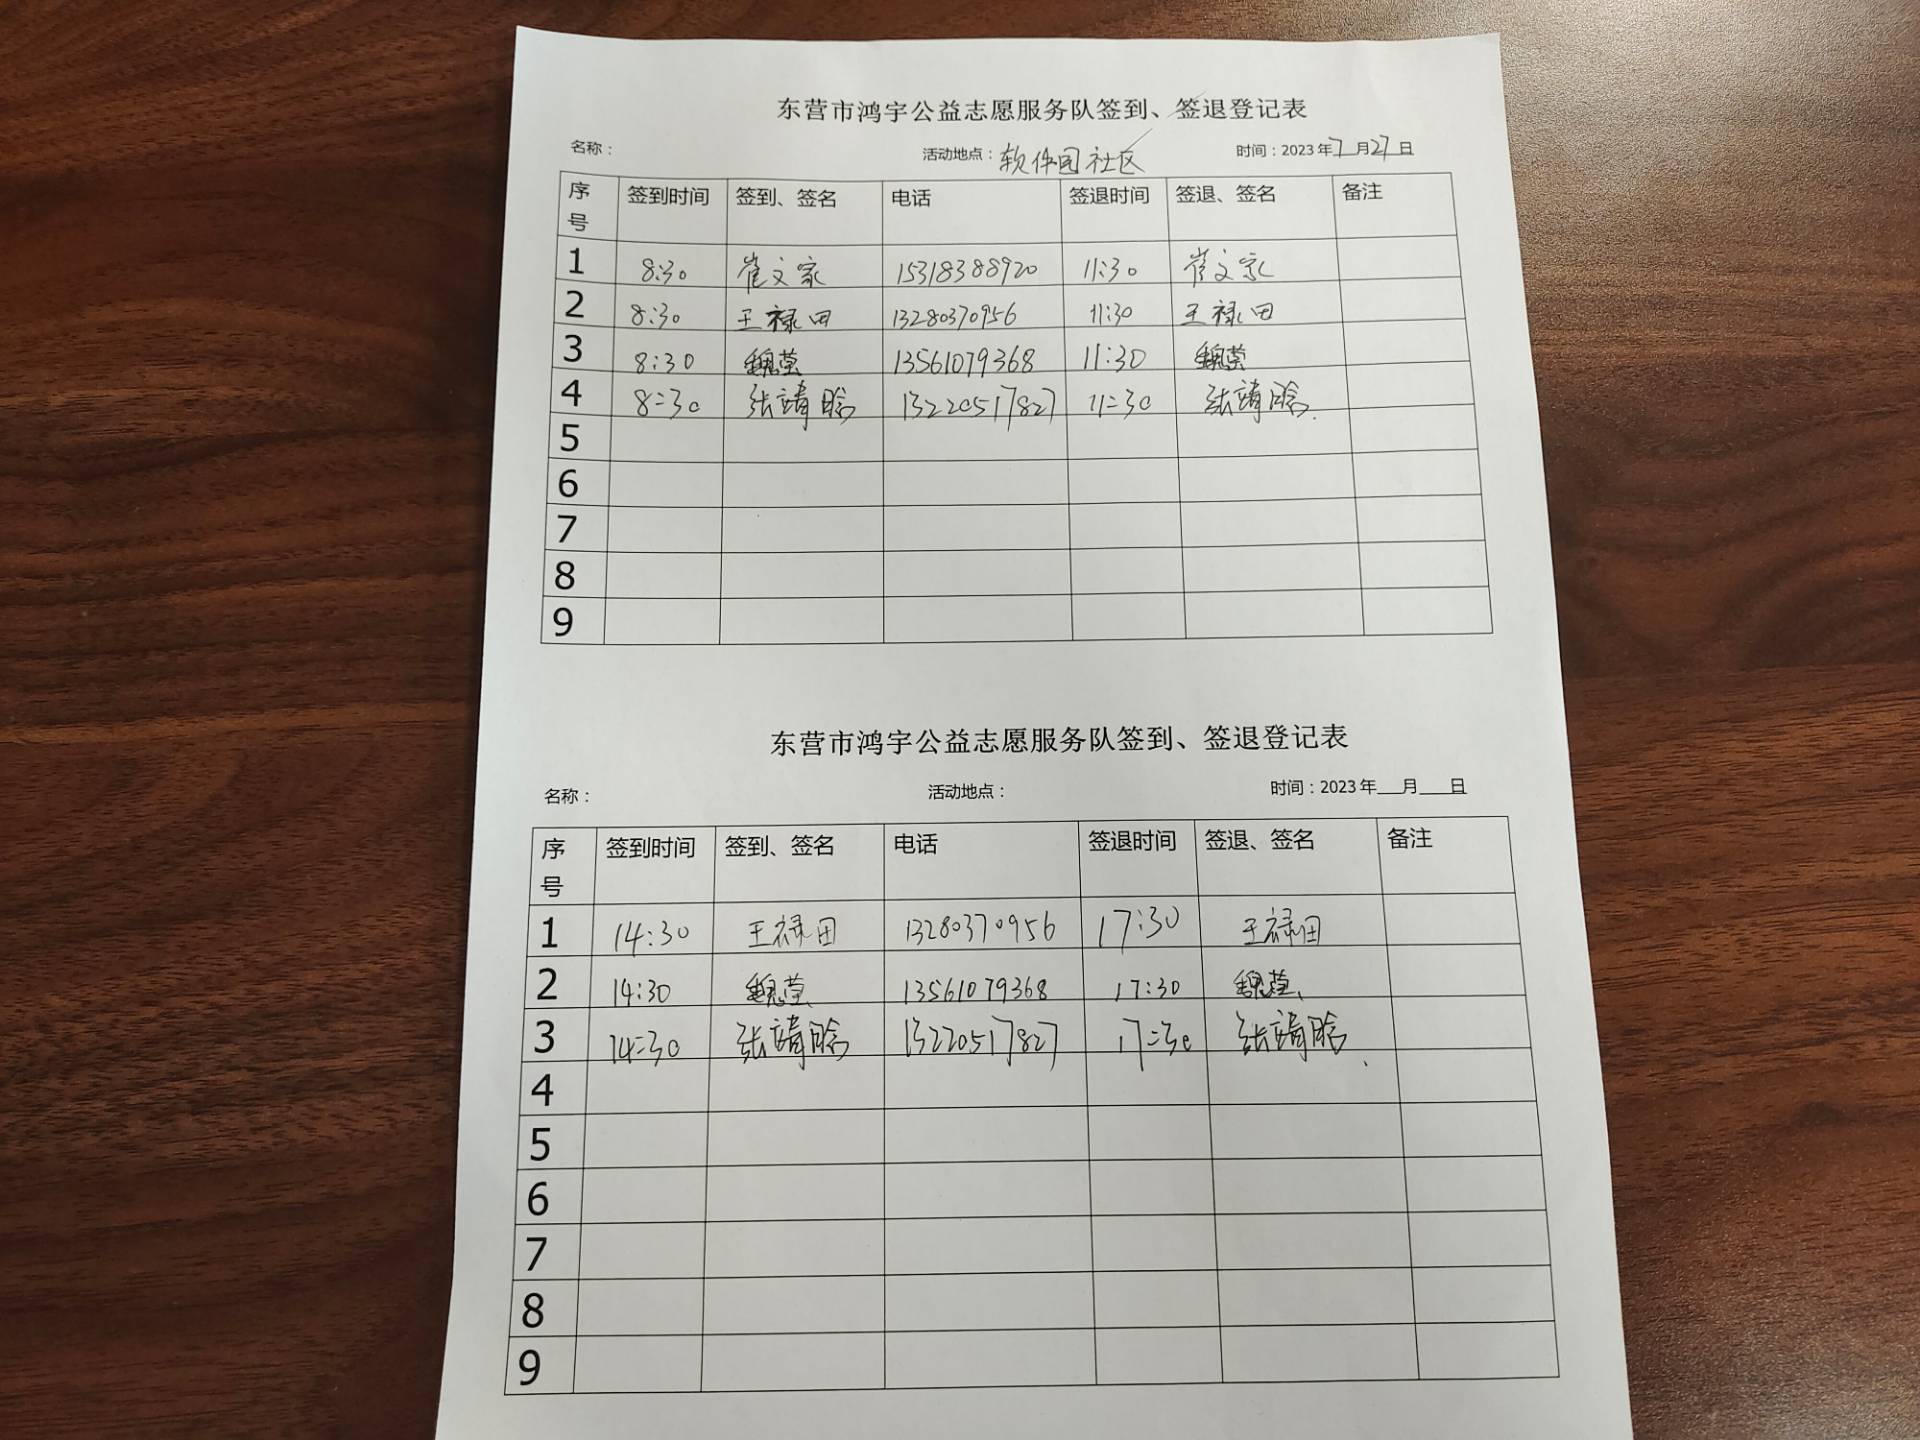 东营市鸿宇公益志愿服务队签到、签退登记表
名称： 活动地点：软件园社区 时间：2023年7月27日
序号 签到时间 签到、签名 电话 签退时间 签退、签名 备注
1 8:30 崔文家 15318388920 11:30 崔文家
2 8:30 王禄田 13280370956 11:30 王禄田
3 8:30 魏莹 13561079368 11:30 魏莹
4 8:30 张靖晗 13220517827 11:30 张靖晗
5
6
7
8
9
东营市鸿宇公益志愿服务队签到、签退登记表
名称： 活动地点： 时间：2023年___月___日
序号 签到时间 签到、签名 电话 签退时间 签退、签名 备注
1 14:30 王禄田 13280370956 17:30 王禄田
2 14:30 魏莹 13561079368 17:30 魏莹
3 14:30 张靖晗 13220517827 17:30 张靖晗
4
5
6
7
8
9